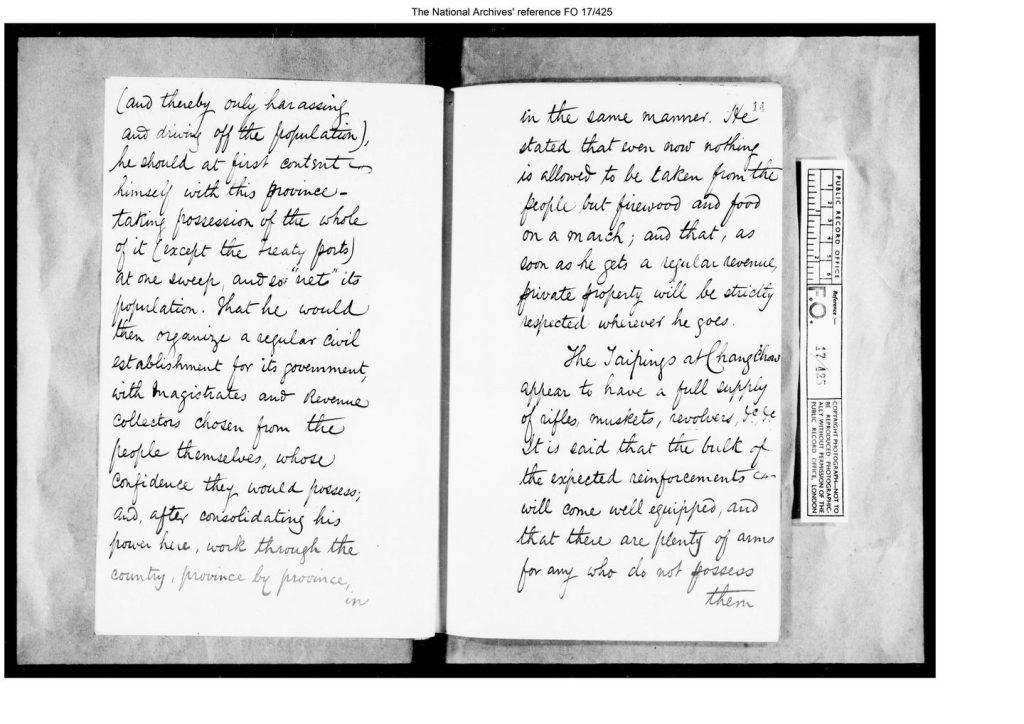 The National Archives' reference FO 17/425
(and thereby only harassing
and driving off the population),
he should at first content
himself with this province -
taking possession of the whole
of it (except the Treaty ports)
at one sweep, and so "net" its
population. That he would
then organize a regular civil
establishment for its government,
with Magistrates and Revenue
Collectors chosen from the
people themselves, whose
Confidence they would possess;
and, after consolidating his
power here, work through the
country, province by province,
in
14
in the same manner. He
stated that even now nothing
is allowed to be taken from the
people but firewood and food
on a march; and that, as
soon as he gets a regular revenue,
private property will be strictly
respected wherever he goes.
The Taipings at Chang Chow
appear to have a full supply
of rifles, muskets, revolvers, &c. &c.
It is said that the bulk of
the expected reinforcements
will come well equipped, and
that there are plenty of arms
for any who do not possess
them
PUBLIC RECORD OFFICE
1 2 3 4 5 6
1 2
Reference:-
F.O.
17/425
COPYRIGHT PHOTOGRAPH-NOT TO
BE REPRODUCED PHOTOGRAPHIC-
ALLY WITHOUT PERMISSION OF THE
PUBLIC RECORD OFFICE, LONDON